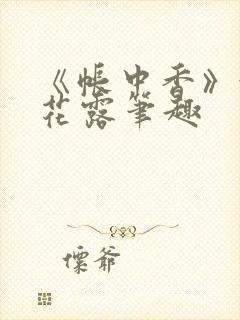 《帐中香》
花露笔趣
僳爷